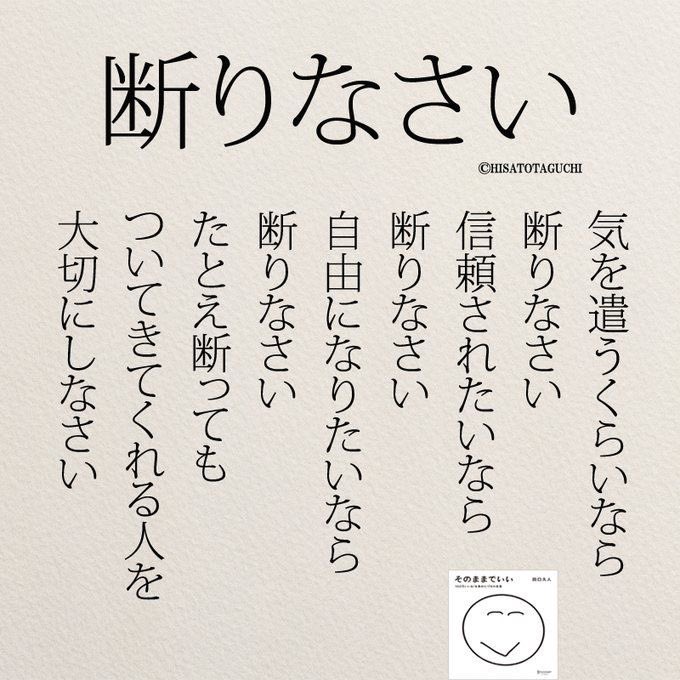 断りなさい
©HISATOTAGUCHI
気を遣うくらいなら
断りなさい
信頼されたいなら
断りなさい
自由になりたいなら
断りなさい
たとえ断っても
ついてきてくれる人を
大切にしなさい
そのままでいい
田口久人